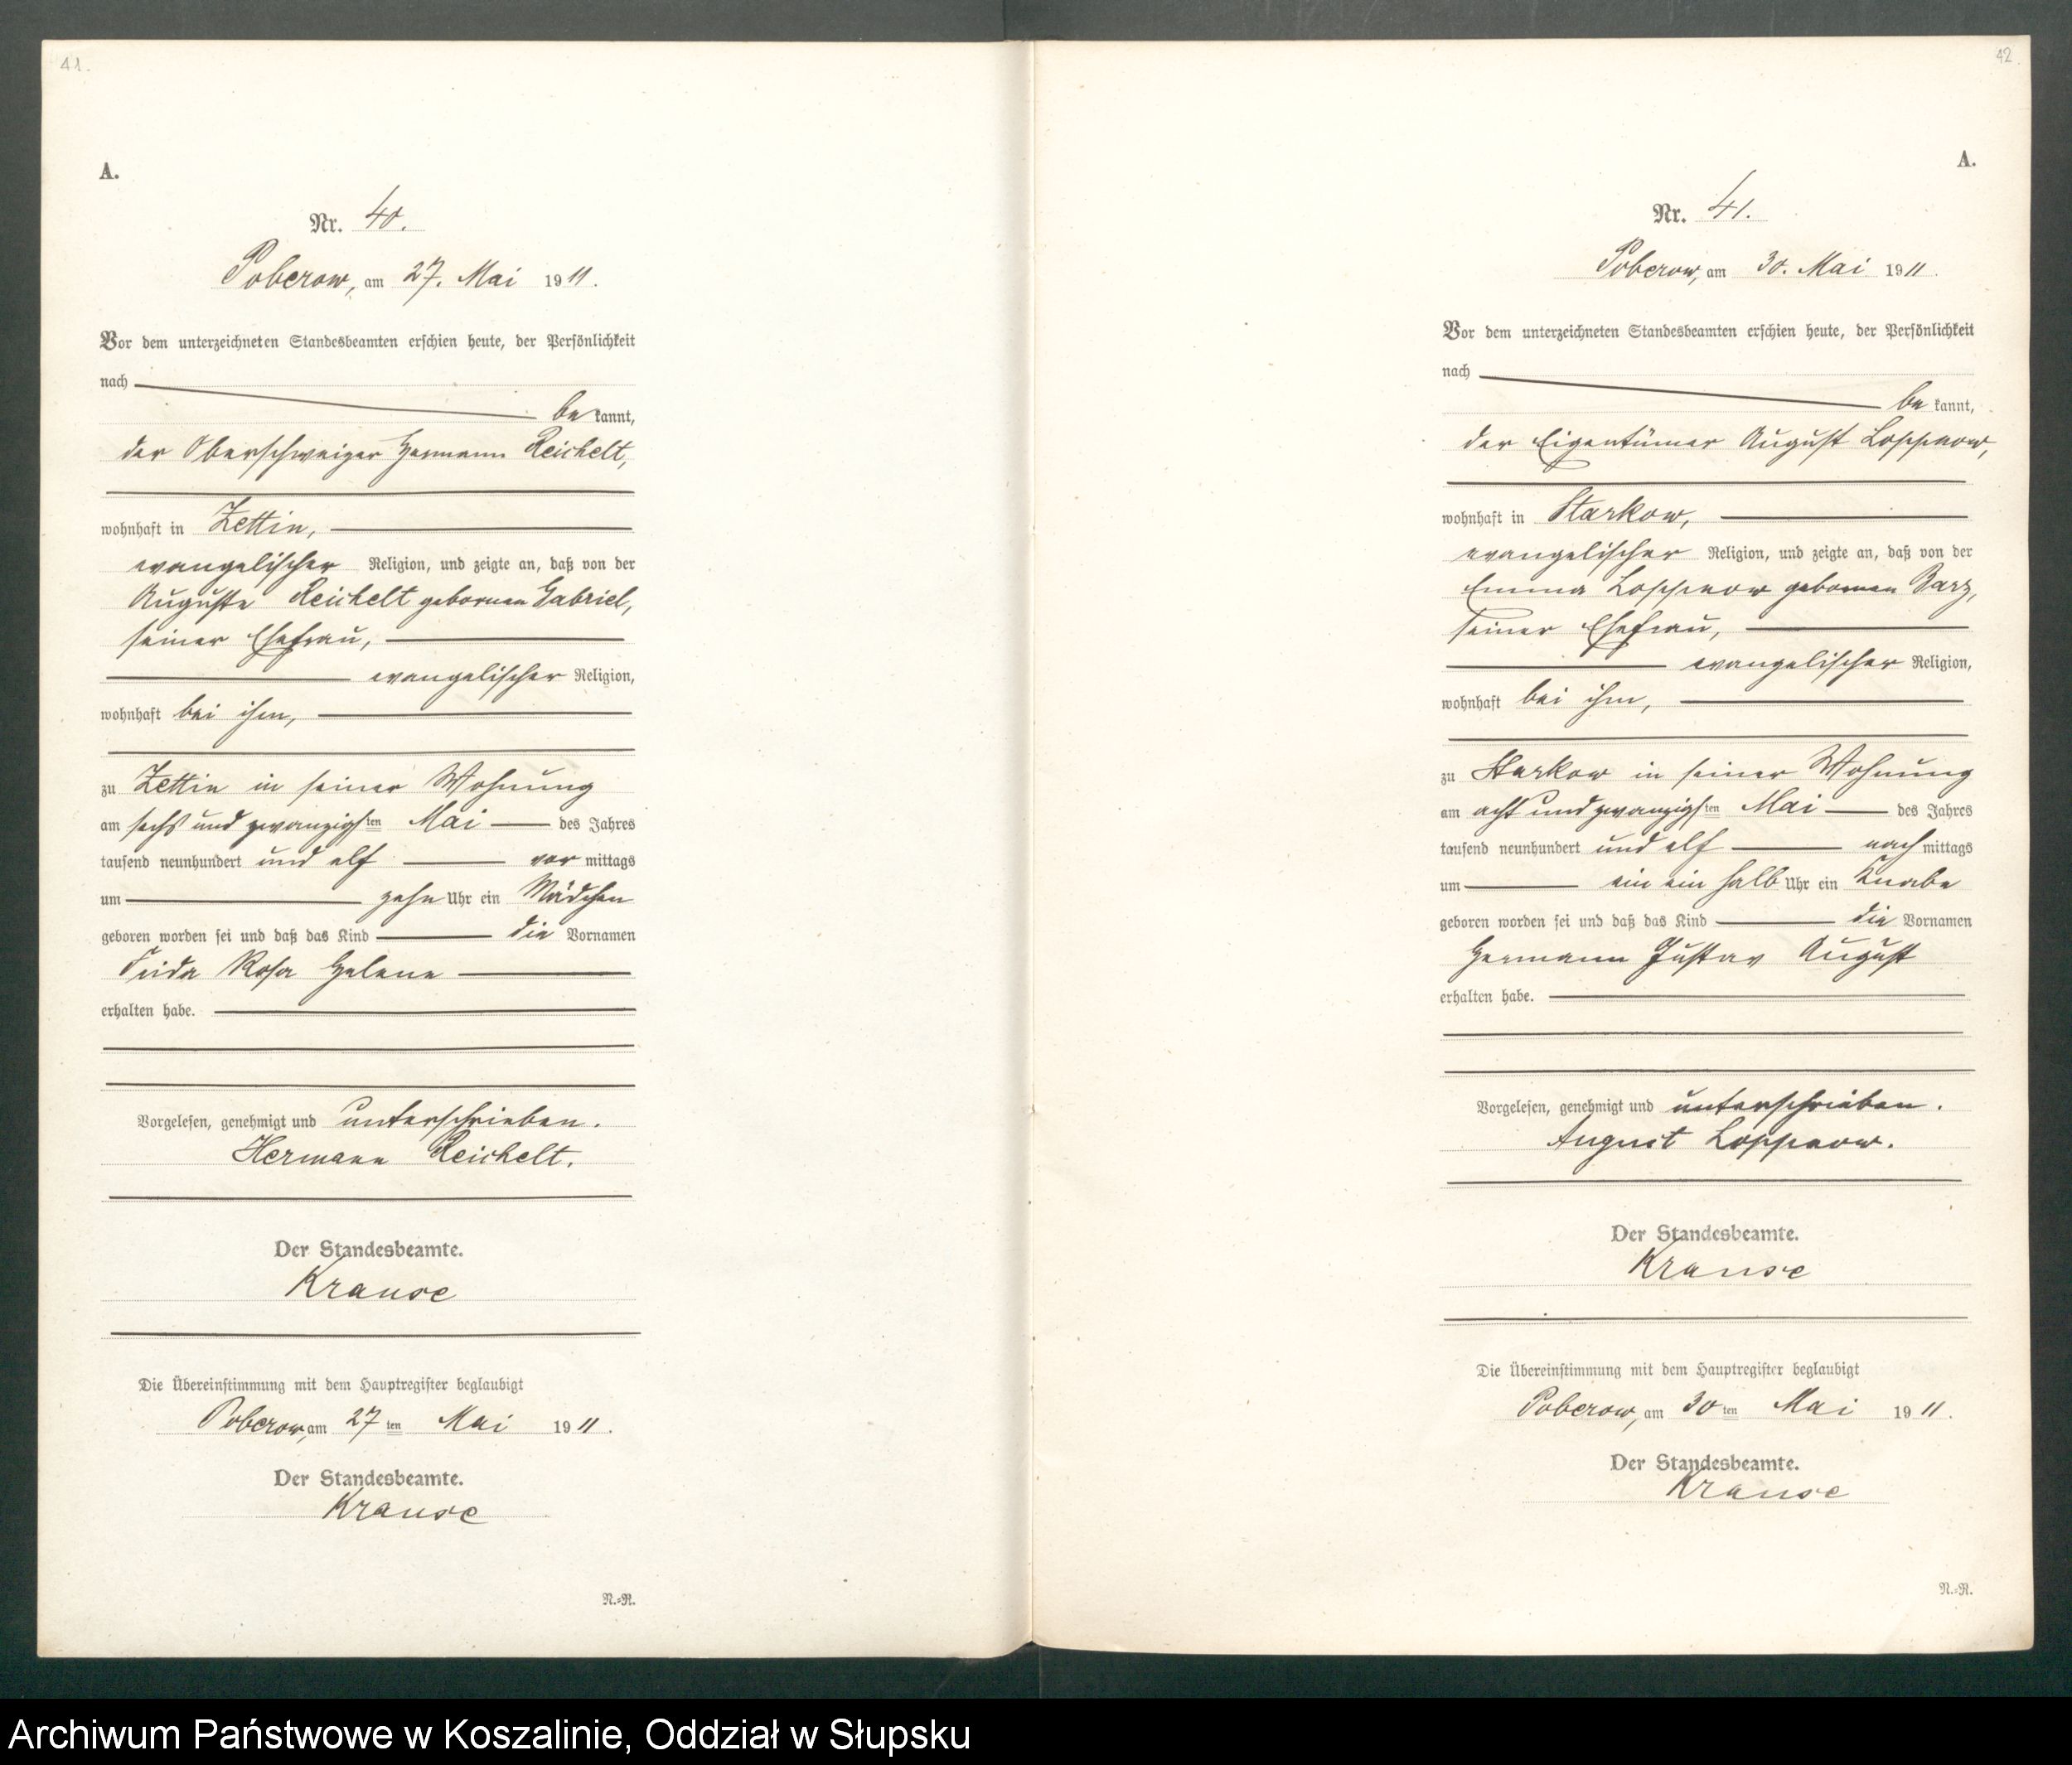 41.
A.
Nr. 40.
Poberow, am 27. Mai 1911.
Vor dem unterzeichneten Standesbeamten erschien heute, der Persönlichkeit
nach
be kannt,
der Oberschweizer Hermann Reichelt,
wohnhaft in Zettin,
evangelischer Religion, und zeigte an, daß von der
Auguste Reichelt gebornen Gabriel,
seiner Ehefrau,
evangelischer Religion,
wohnhaft bei ihm,
zu Zettin in seiner Wohnung
am sechs und zwanzigsten Mai des Jahres
tausend neunhundert und elf vor mittags
um zehn Uhr ein Mädchen
geboren worden sei und daß das Kind die Vornamen
Frida Rosa Helene
erhalten habe.
Vorgelesen, genehmigt und unterschrieben.
Hermann Reichelt.
Der Standesbeamte.
Krause
Die Übereinstimmung mit dem Hauptregister beglaubigt
Poberow, am 27ten Mai 1911.
Der Standesbeamte.
Krause
N.=R.
42.
A.
Nr. 41.
Poberow, am 30. Mai 1911.
Vor dem unterzeichneten Standesbeamten erschien heute, der Persönlichkeit
nach
be kannt,
der Eigentümer August Loppnow,
wohnhaft in Starkow,
evangelischer Religion, und zeigte an, daß von der
Emma Loppnow gebornen Barz,
seiner Ehefrau,
evangelischer Religion,
wohnhaft bei ihm,
zu Starkow in seiner Wohnung
am acht und zwanzigsten Mai des Jahres
tausend neunhundert und elf nach mittags
um ein ein halb Uhr ein Knabe
geboren worden sei und daß das Kind die Vornamen
Hermann Gustav August
erhalten habe.
Vorgelesen, genehmigt und unterschrieben.
August Loppnow.
Der Standesbeamte.
Krause
Die Übereinstimmung mit dem Hauptregister beglaubigt
Poberow, am 30ten Mai 1911.
Der Standesbeamte.
Krause
N.=R.
Archiwum Państwowe w Koszalinie, Oddział w Słupsku